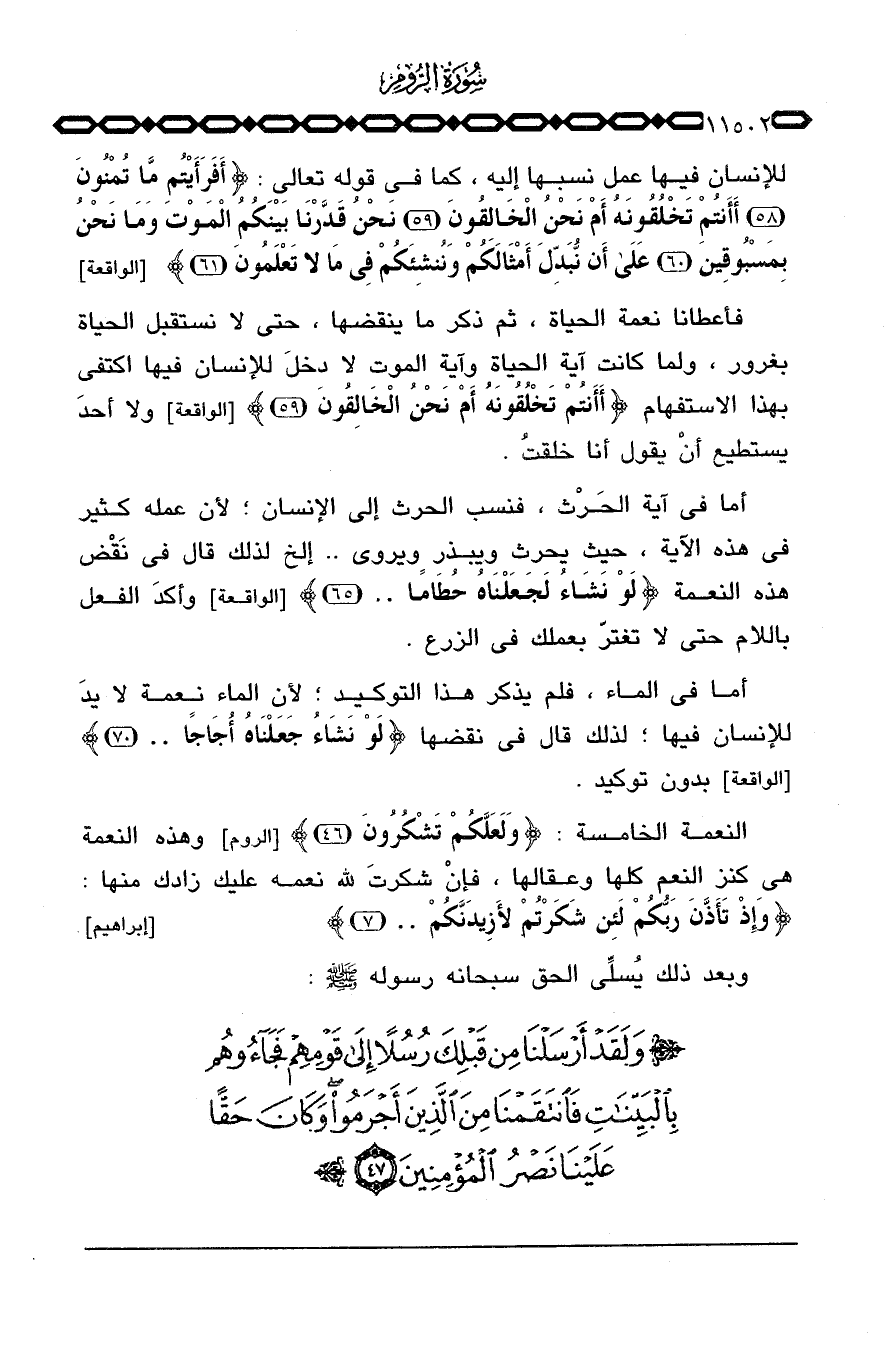 سُورَةُ الرُّومِ
١١٥٠٢
للإنسان فيها عمل نسبها إليه ، كما فى قوله تعالى : ﴿ أَفَرَأَيْتُم مَّا تُمْنُونَ
(٥٨) أَأَنتُمْ تَخْلُقُونَهُ أَمْ نَحْنُ الْخَالِقُونَ (٥٩) نَحْنُ قَدَّرْنَا بَيْنَكُمُ الْمَوْتَ وَمَا نَحْنُ
بِمَسْبُوقِينَ (٦٠) عَلَىٰ أَن نُّبَدِّلَ أَمْثَالَكُمْ وَنُنشِئَكُمْ فِى مَا لا تَعْلَمُونَ (٦١) ﴾ [الواقعة]
فأعطانا نعمة الحياة ، ثم ذكر ما ينقضها ، حتى لا نستقبل الحياة
بغرور ، ولما كانت آية الحياة وآية الموت لا دخلَ للإنسان فيها اكتفى
بهذا الاستفهام ﴿ أَأَنتُمْ تَخْلُقُونَهُ أَمْ نَحْنُ الْخَالِقُونَ (٥٩) ﴾ [الواقعة] ولا أحدَ
يستطيع أنْ يقول أنا خلقتُ .
أما فى آية الحَرْث ، فنسب الحرث إلى الإنسان ؛ لأن عمله كثير
فى هذه الآية ، حيث يحرث ويبذر ويروى .. إلخ لذلك قال فى نَقْض
هذه النعمة ﴿ لَوْ نَشَاءُ لَجَعَلْنَاهُ حُطَامًا .. (٦٥) ﴾ [الواقعة] وأكدَ الفعل
باللام حتى لا تغترّ بعملك فى الزرع .
أما فى الماء ، فلم يذكر هذا التوكيد ؛ لأن الماء نعمة لا يدَ
للإنسان فيها ؛ لذلك قال فى نقضها ﴿ لَوْ نَشَاءُ جَعَلْنَاهُ أُجَاجًا .. (٧٠) ﴾
[الواقعة] بدون توكيد .
النعمة الخامسة : ﴿ وَلَعَلَّكُمْ تَشْكُرُونَ (٤٦) ﴾ [الروم] وهذه النعمة
هى كنز النعم كلها وعقالها ، فإنْ شكرتَ لله نعمه عليك زادك منها :
﴿ وَإِذْ تَأَذَّنَ رَبُّكُمْ لَئِن شَكَرْتُمْ لأَزِيدَنَّكُمْ .. (٧) ﴾ [إبراهيم]
وبعد ذلك يُسلِّى الحق سبحانه رسوله ﷺ :
﴿ وَلَقَدْ أَرْسَلْنَا مِن قَبْلِكَ رُسُلًا إِلَىٰ قَوْمِهِمْ فَجَآءُوهُم
بِٱلْبَيِّنَٰتِ فَٱنتَقَمْنَا مِنَ ٱلَّذِينَ أَجْرَمُوا۟ ۖ وَكَانَ حَقًّا
عَلَيْنَا نَصْرُ ٱلْمُؤْمِنِينَ ٤٧ ﴾